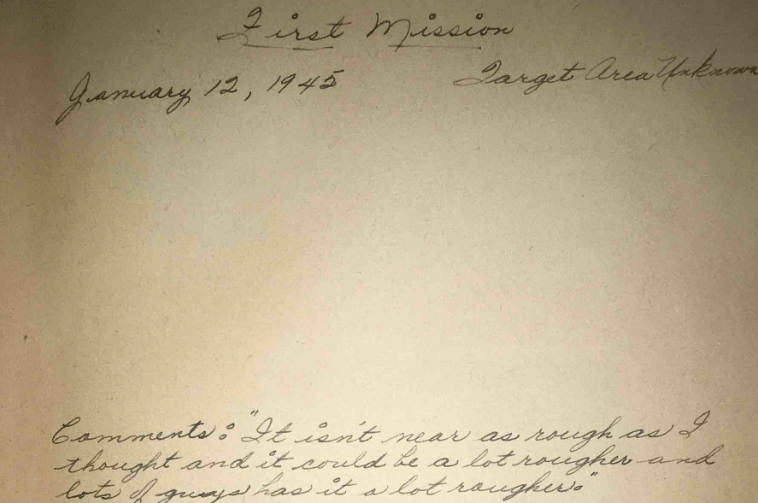 First Mission
January 12, 1945 Target Area Unknown
Comments: "It isn't near as rough as I
thought and it could be a lot rougher and
lots of guys has it a lot rougher."